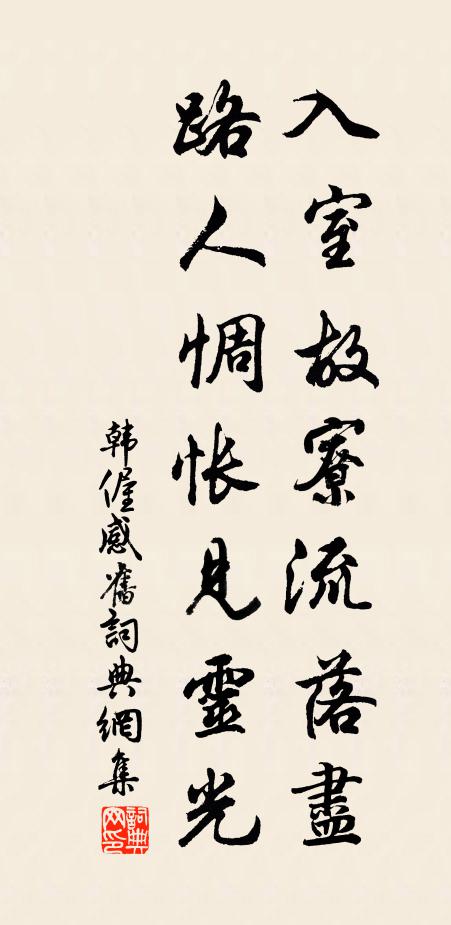 入室故寮流落盡
路人惆悵見靈光
韓偓感舊詞典網集
詞典网印